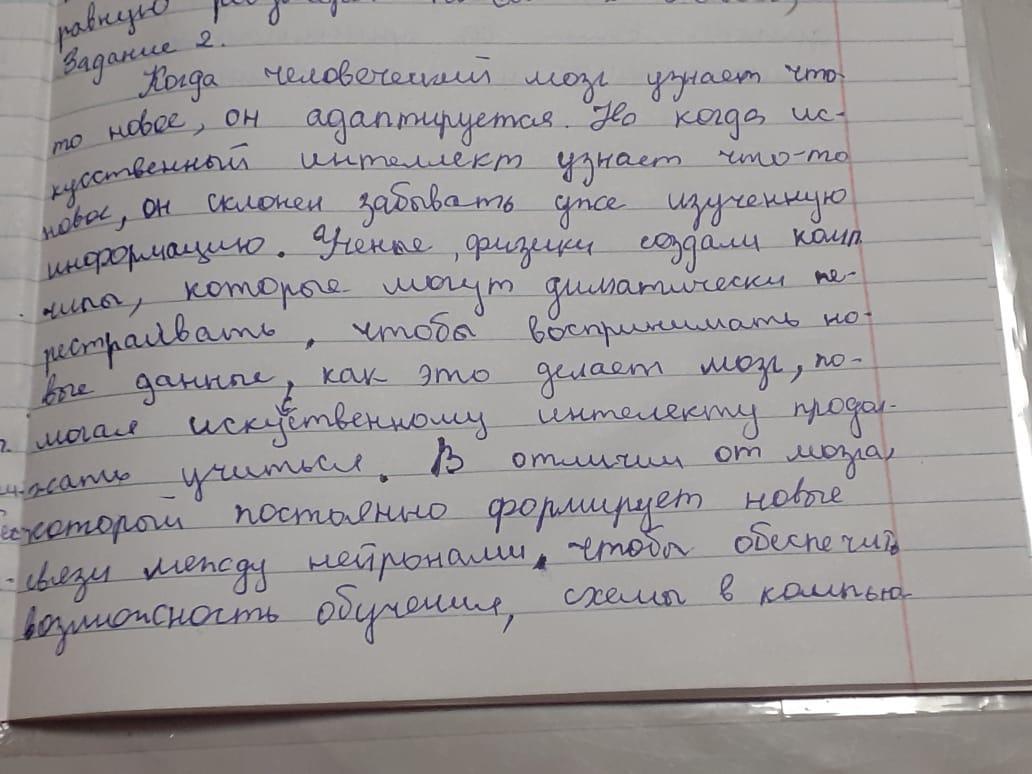 равную
Задание 2.
Когда человеческий мозг узнает что
то новое, он адаптируется. Но когда ис-
кусственный интеллект узнает что-то
новое, он склонен забывать уже изученную
информацию. Ученые, физики создали комп.
чипы, которые могут диматически пе-
рестраивать, чтобы воспринимать но-
вые данные, как это делает мозг, по-
могая искусственному интелекту продол-
жать учиться. В отличии от мозга,
который постоянно формирует новые
связи между нейронами, чтобы обеспечить
возможность обучения, схемы в компью-